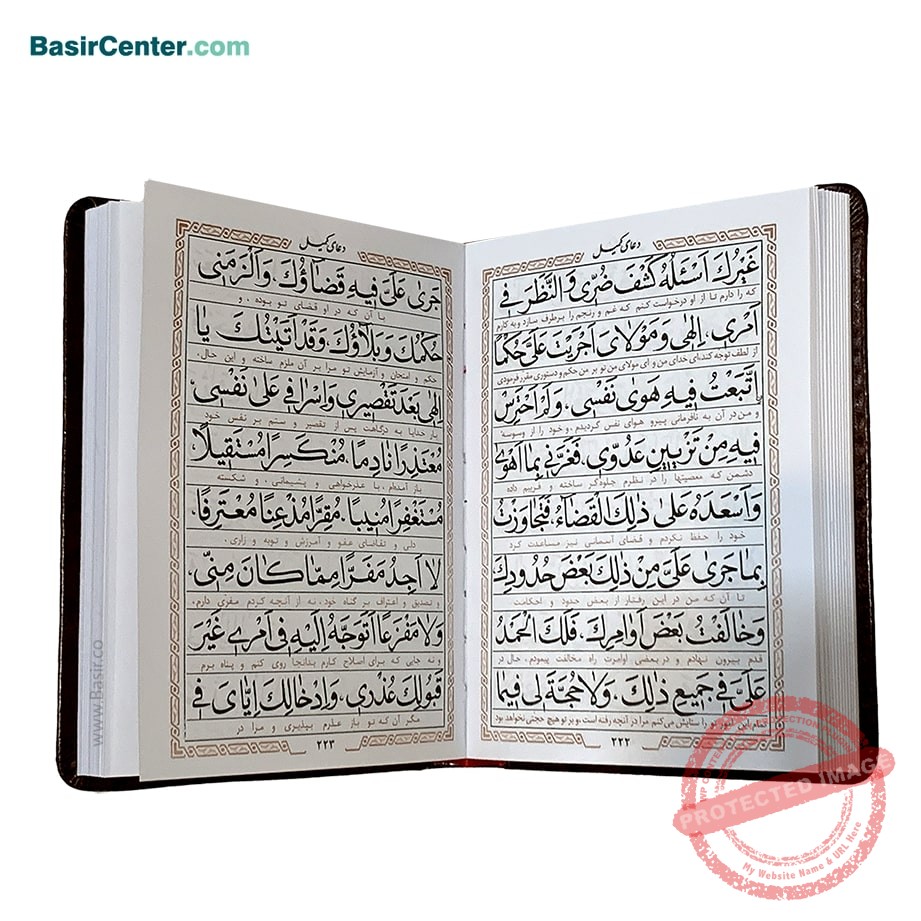 BasirCenter.com
دعای کمیل
غَيْرُكَ اَسْئَلُهُ كَشْفَ ضُرّى وَالنَّظَرَ فى
که را دارم تا از او درخواست کنم که غم و رنجم را برطرف سازد و به کارم
اَمْرى، اِلهى وَمَوْلاىَ اَجْرَيْتَ عَلَىَّ حُكْمًا
از لطف توجه کند، ای خدای من و ای مولای من تو بر من حکم و دستوری مقرر فرمودی
اِتَّبَعْتُ فيهِ هَوى نَفْسى، وَلَمْ اَحْتَرِسْ
و من در آن به نافرمانی پیرو هوای نفس گردیدم، و خود را از وسوسه
فيهِ مِنْ تَزْيينِ عَدُوّى، فَغَرَّنى بِما اَهْوى
دشمن که معصیتها را در نظرم جلوه‌گر ساخته و فریبم داده
وَاَسْعَدَهُ عَلى ذلِكَ الْقَضاءُ، فَتَجاوَزْتُ
خود را حفظ نکردم و قضای آسمانی نیز مساعدت کرد
بِما جَرى عَلَىَّ مِنْ ذلِكَ بَعْضَ حُدُودِكَ
تا آن که من در این رفتار از بعض حدود و احکامت
وَخالَفْتُ بَعْضَ اَوامِرِكَ، فَلَكَ الْحَمْدُ
قدم بیرون نهادم و در بعضی اوامرت راه مخالفت پیمودم، حال در
عَلَىَّ فى جَميعِ ذلِكَ، وَلا حُجَّةَ لى فيما
تمام این امور تو را ستایش می‌کنم مرا در آنچه رفته است بر تو هیچ حجتی نخواهد بود
۲۲۲
دعای کمیل
جَرى عَلَىَّ فيهِ قَضاؤُكَ، وَاَلْزَمَنى
با آن که در او قضای تو بوده، و
حُكْمُكَ وَبَلاؤُكَ وَقَدْ اَتَيْتُكَ يا
حکم و امتحان و آزمایش تو مرا بر آن ملزم ساخته و این حال،
اِلهى بَعْدَ تَقْصيرى وَاِسْرافى عَلى نَفْسى،
بار خدایا به درگاهت پس از تقصیر و ستم بر نفس خود
مُعْتَذِرًا نادِمًا، مُنْكَسِرًا مُسْتَقيلًا
باز آمده‌ام، با عذرخواهی و پشیمانی، و شکسته
مُسْتَغْفِرًا مُنيبًا، مُقِرًّا مُذْعِنًا مُعْتَرِفًا،
دلی و تقاضای عفو و آمرزش و توبه و زاری،
لا اَجِدُ مَفَرًّا مِمّا كانَ مِنّى،
و تصدیق و اعتراف بر گناه خود، نه از آنچه کردم مفری دارم،
وَلا مَفْزَعًا اَتَوَجَّهُ اِلَيْهِ فى اَمْرى غَيْرَ
و نه جایی که برای اصلاح کارم بدانجا روی کنم و پناه برم
قَبُولِكَ عُذْرى، وَاِدْخالِكَ اِيّاىَ فى
مگر آن که تو باز عذرم بپذیری و مرا در
۲۲۳
www.Basir.co
PROTECTED IMAGE
My Website Name & URL Here